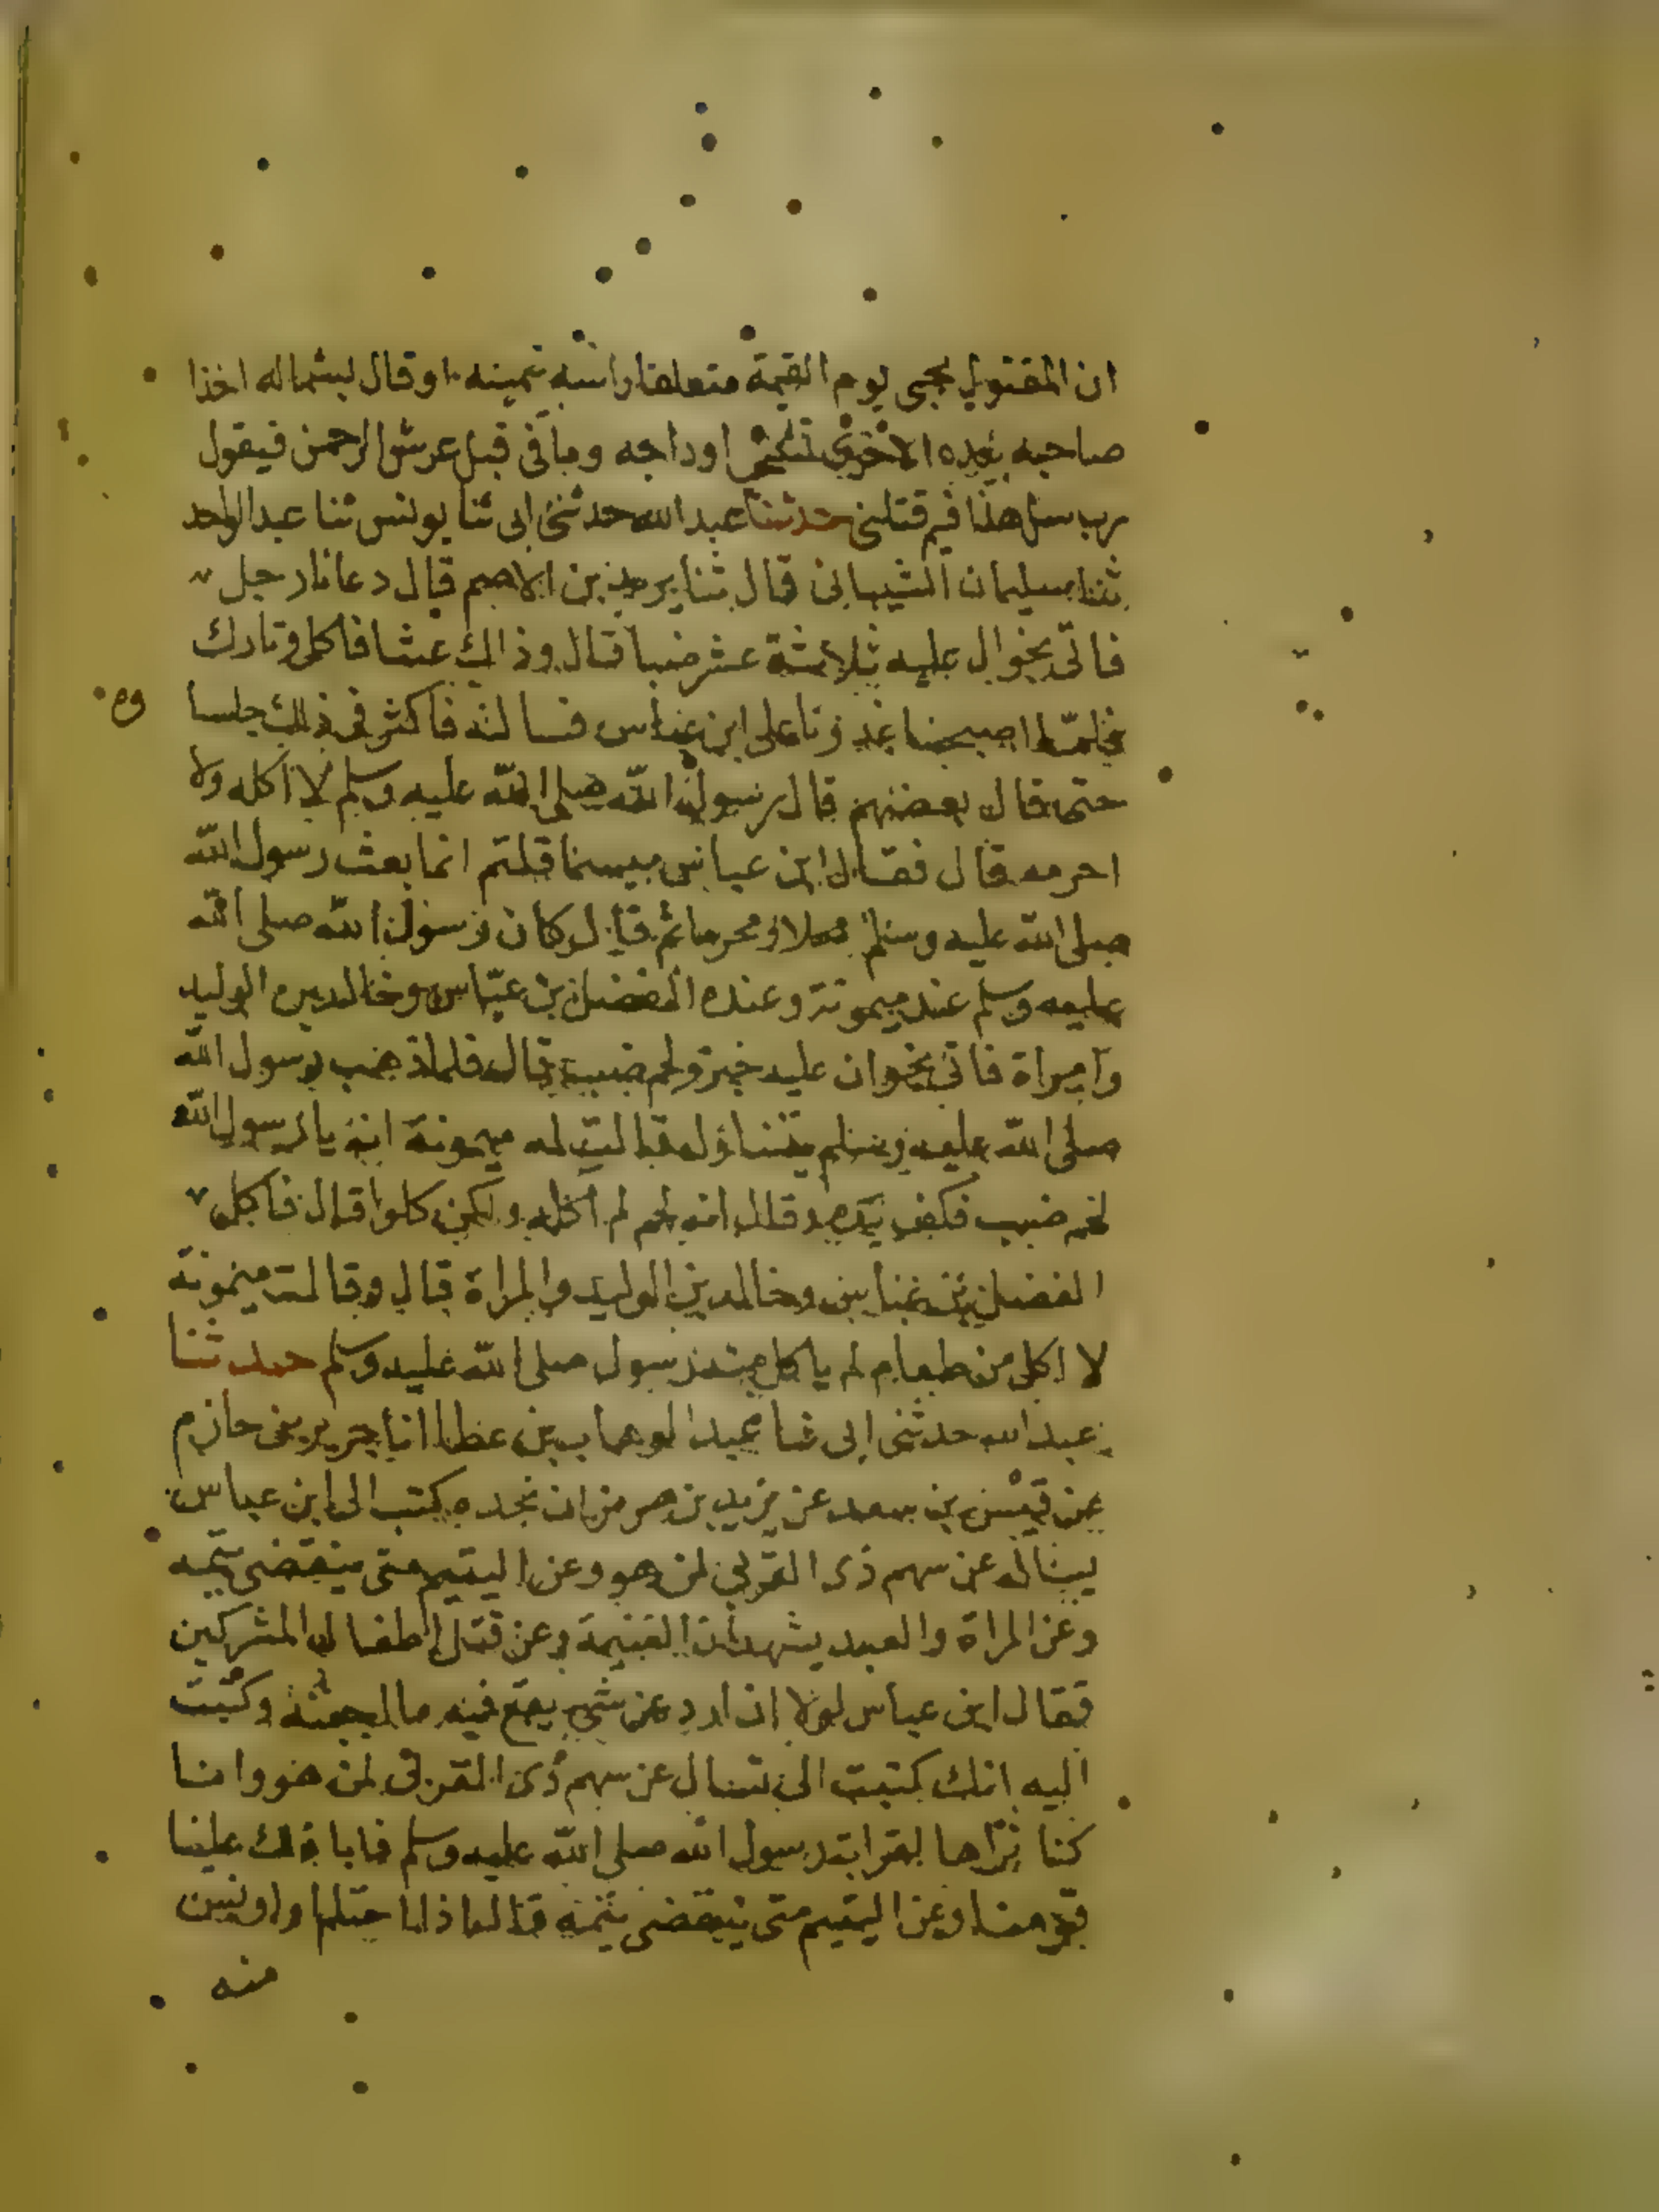 ان المقتول يجى يوم القيمة متعلقا راسه بيمينه او قال بشماله اخذا
صاحبه بيده الاخرى تشخب اوداجه وما فى قبل عرش الرحمن فيقول
رب سل هذا فيم قتلنى حدثنا عبد الله حدثنى ابى ثنا يونس ثنا عبد الواحد
ثنا سليمان الشيبانى قال ثنا يزيد بن الاصم قال دعانا رجل
فاتى بخوان عليه ثلاثة عشر ضبا قال وذالك عشا فاكل وتارك
فلما اصبحنا غدونا على ابن عباس فسالته فاكثر فى ذلك جلسا
وه
حتى قال بعضهم قال رسول الله صلى الله عليه وسلم لا اكله ولا
احرمه قال فقال ابن عباس بيسما قلتم انما بعث رسول الله
صلى الله عليه وسلم محلا ومحرما ثم قال كان رسول الله صلى الله
عليه وسلم عند ميمونة وعنده الفضل بن عباس وخالد بن الوليد
وامراة فاتى بخوان عليه خبز ولحم ضب قال فلما ذهب رسول الله
صلى الله عليه وسلم يتناول قالت له ميمونة انه يا رسول الله
لحم ضب فكف يده وقال انه لحم لم اكله ولكن كلوا قال فاكل
الفضل بن عباس وخالد بن الوليد والمراة قال وقالت ميمونة
لا اكل من طعام لم ياكل منه رسول صلى الله عليه وسلم حدثنا
عبد الله حدثنى ابى ثنا عبد الوهاب بن عطا انا جرير بن حازم
عن قيس بن سعد عن يزيد بن هرمز ان نجده كتب الى ابن عباس
يساله عن سهم ذى القربى لمن هو وعن اليتيم متى ينقضى يتمه
وعن المراة والعبد يشهدان الغنيمة وعن قتل اطفال المشركين
فقال ابن عباس لولا ان ارد عن شى يقع فيه ما اجبته وكتب
اليه انك كتبت الى تسال عن سهم ذى القربى لمن هو وانا
كنا نراها لقرابة رسول الله صلى الله عليه وسلم فابا ذلك علينا
قومنا وعن اليتيم متى ينقضى يتمه قال اذا احتلم او اونس
منه